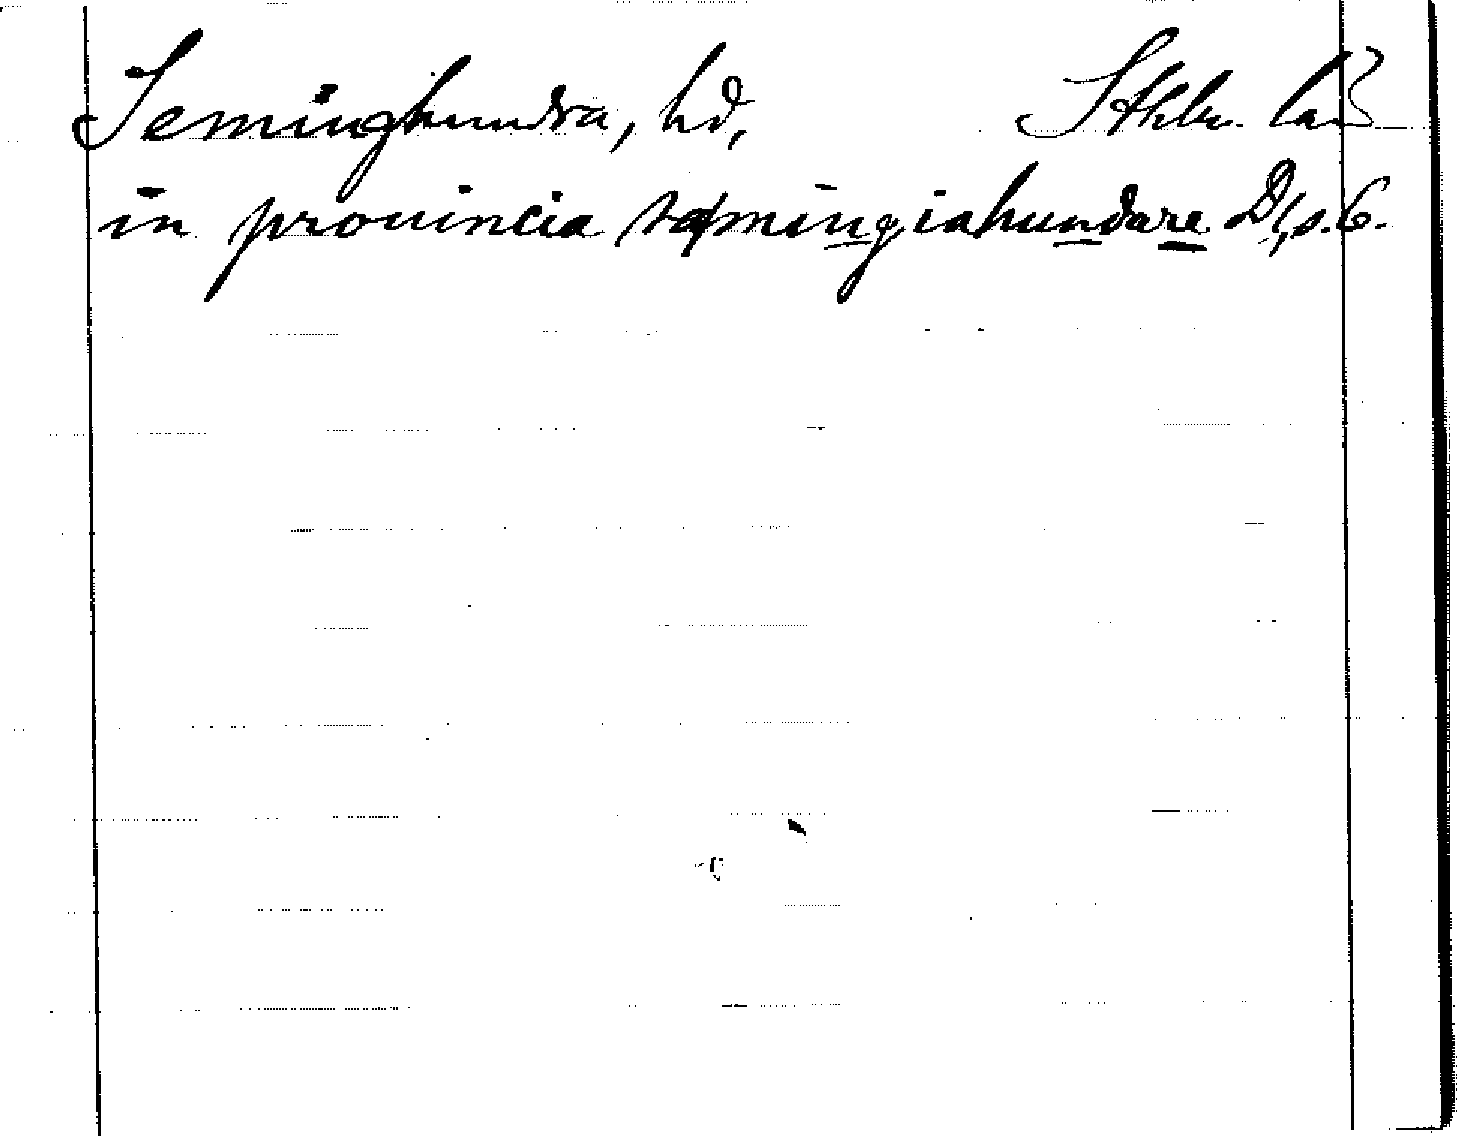 Seminghundra, hd, Sthlm. län
in prouincia sæmingiahundare D1, s. 6.